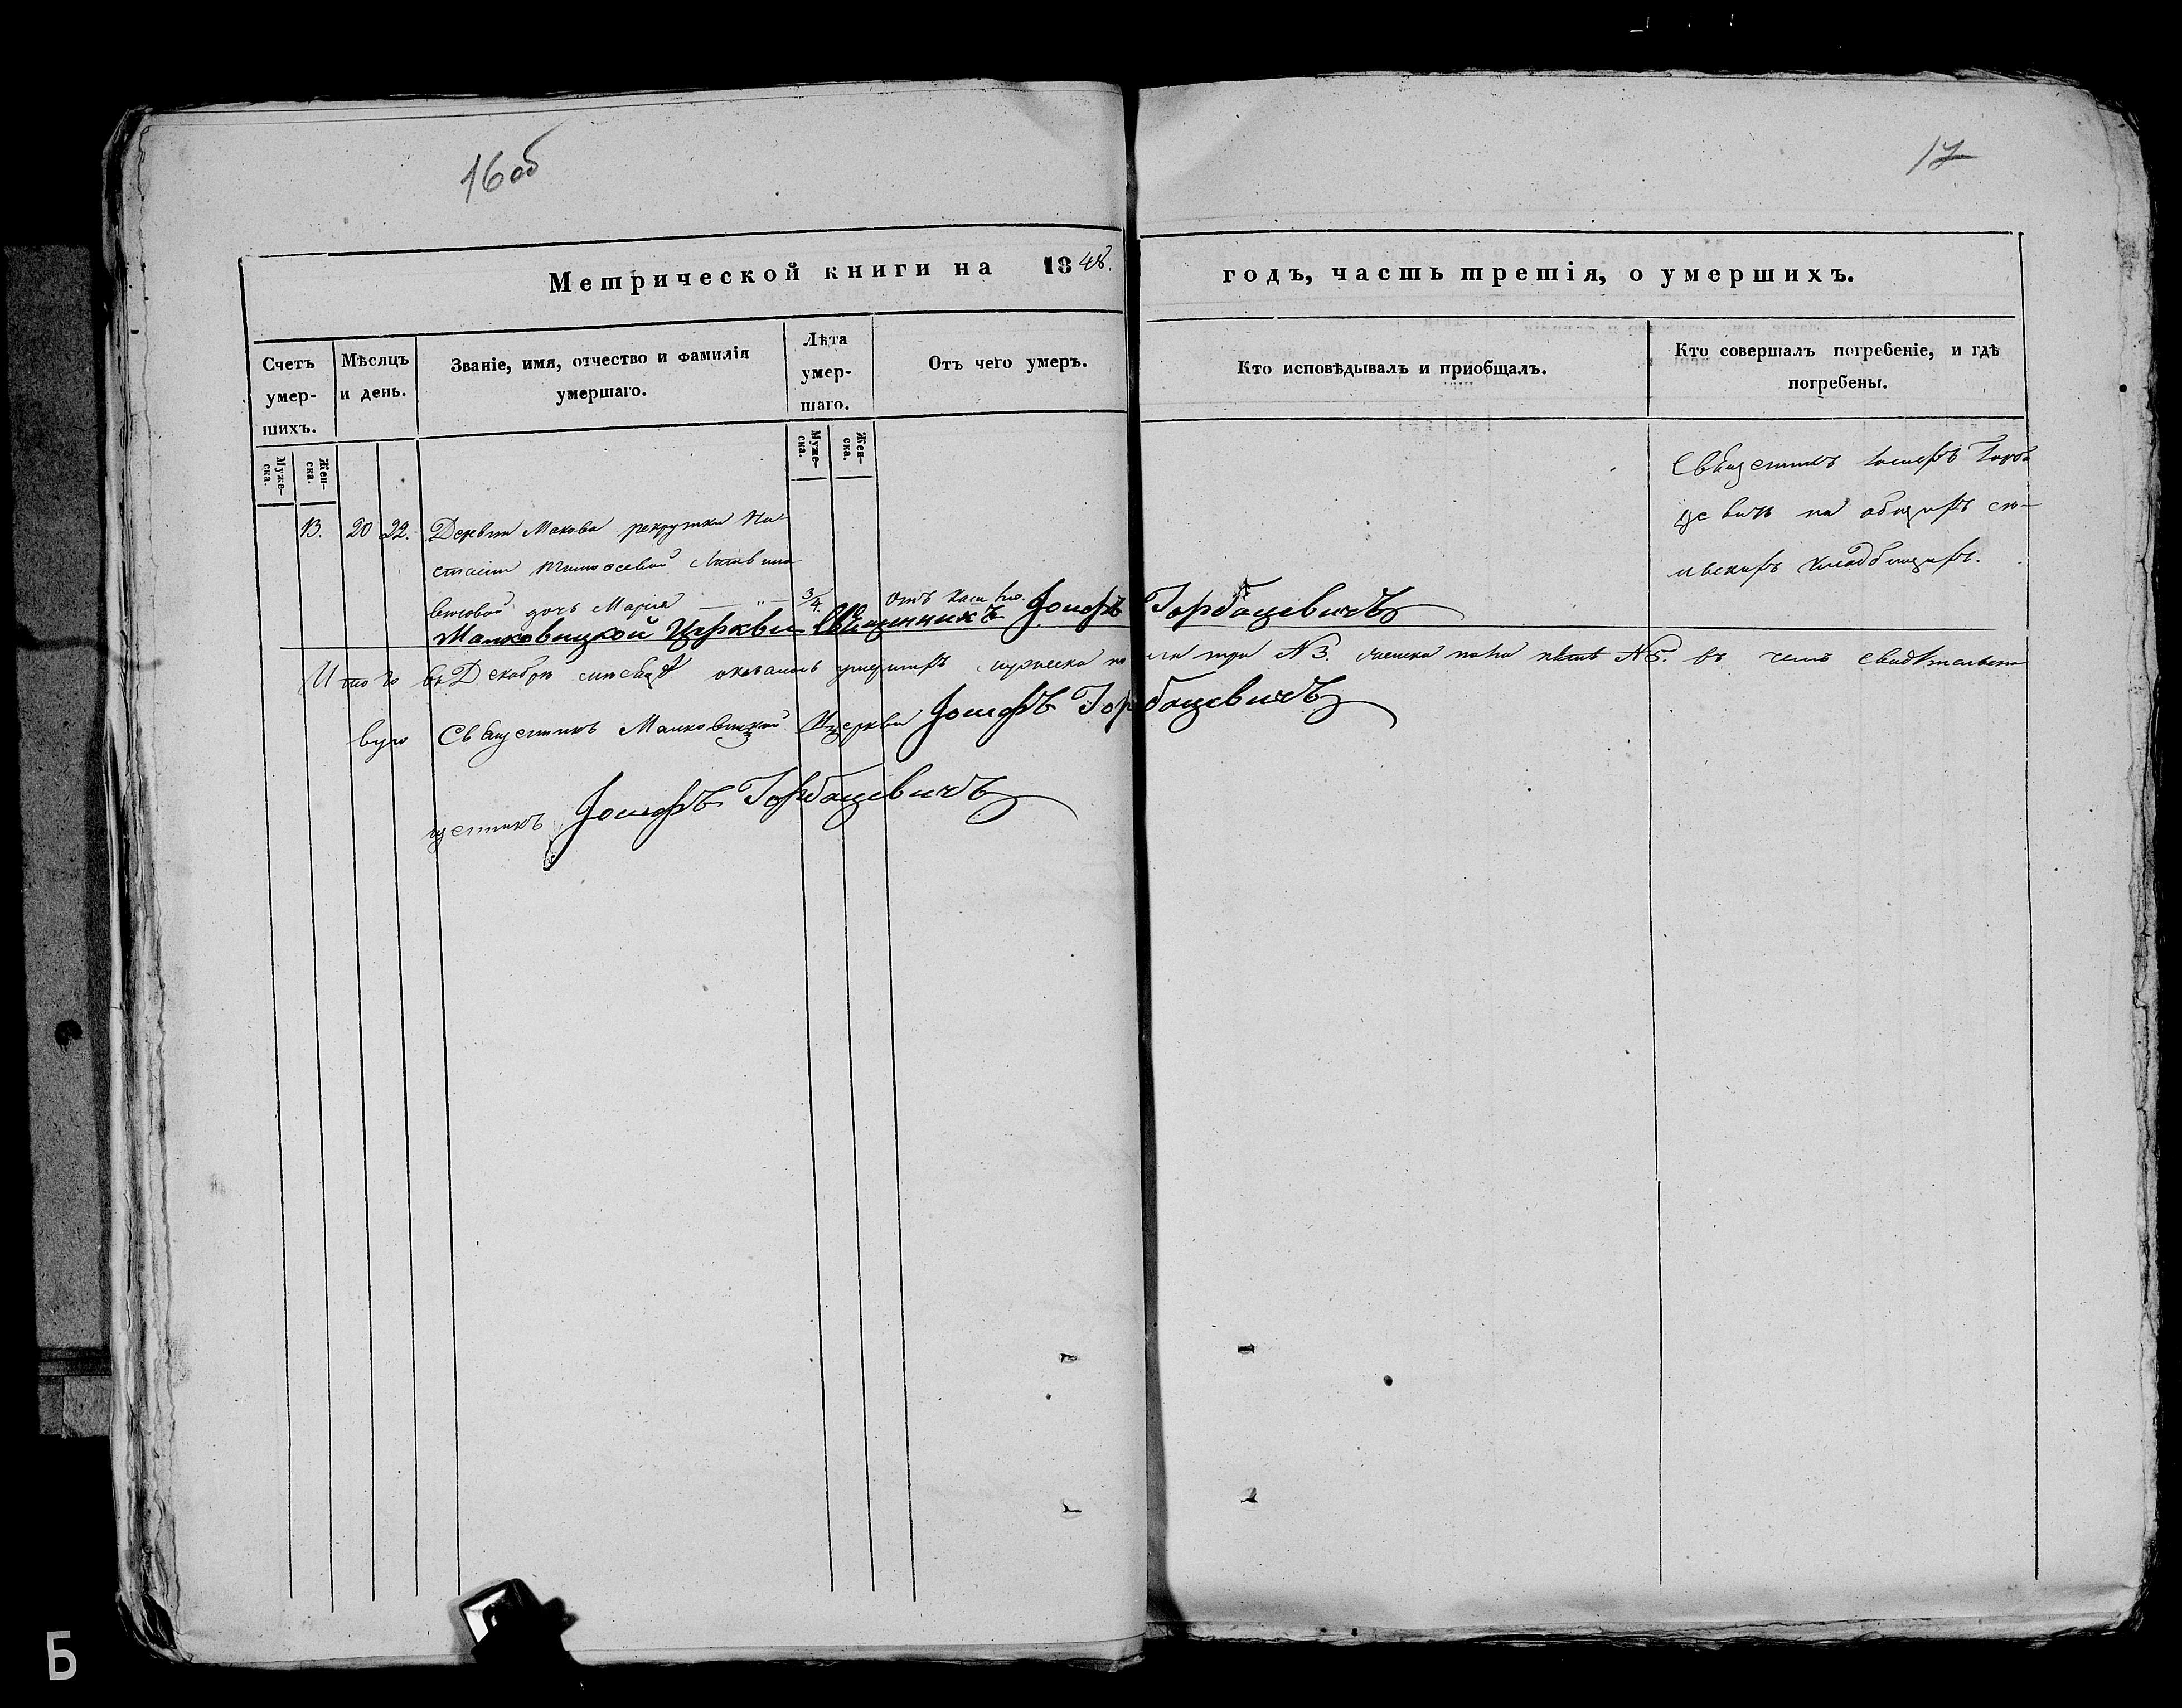 16об
17
Метрической книги на 1848. годъ, часть третія, о умершихъ.
Счетъ умер-шихъ.
Мѣсяцъ и день.
Званіе, имя, отчество и фамилія умершаго.
Лѣта умер-шаго.
Отъ чего умеръ.
Кто исповѣдывалъ и пріобщалъ.
Кто совершалъ погребеніе, и гдѣ погребены.
Муже-ска.
Жен-ска.
Муже-ска.
Жен-ска.
13. 20 22. Деревни Макова рекрутки На-
стасіи
дочь Марія 3/4. отъ кашлю.
Священникъ Іосифъ Горба
цевичь на общемъ се-
льскомъ кладбищѣ.
Малковицкой Церкви Священникъ Іосифъ Горбацевичъ
Итого въ Декабрѣ мѣсяцѣ оказалось умершихъ мужеска пола три №3. женска пола пять №5. въ чемъ свидѣтельст
вую Священникъ Малковицкой Церкви Іосифъ Горбацевичъ
щенникъ Іосифъ Горбацевичъ
Б